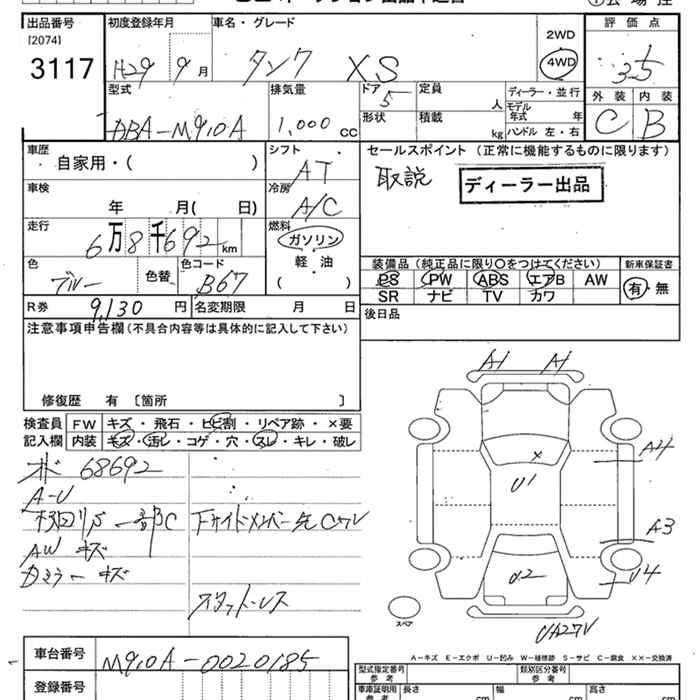 出品番号
[2074]
3117
初度登録年月
H29 9 月
車名・グレード
タンク XS
2WD
4WD
評価点
3.5
外装 内装
C B
型式
DBA-M910A
排気量
1,000 cc
ドア
5
形状
定員
人
積載
kg
ディーラー・並行
モデル年式 年
ハンドル 左・右
車歴
自家用・( )
シフト
AT
セールスポイント (正常に機能するものに限ります)
取説
ディーラー出品
車検
年 月( 日)
冷房
A/C
走行
6万8千692 km
燃料
ガソリン
軽・油
( )
色
ブルー
色替
色コード
B67
装備品 (純正品に限り○をつけてください)
PS PW ABS エアB AW
SR ナビ TV カワ
新車保証書
有・無
R券 9,130 円
名変期限 月 日
後日品
注意事項申告欄 (不具合内容等は具体的に記入して下さい)
修復歴 有 〔箇所 〕
検査員記入欄
FW キズ・飛石・ヒビ割・リペア跡・×要
内装 キズ・汚レ・コゲ・穴・スレ・キレ・破レ
68692
A-U
一部C
下サイドメンバー先CワV
AWキズ
カウラーキズ
スタットレス
A1 A1
A4
U1
A3
U4
U2
UA2ワV
スペア
A-キズ E-エクボ U-凹み W-補修跡 S-サビ C-腐食 ××-交換済
車台番号
M910A-0020185
登録番号
型式指定番号
参考
類別区分番号
参考
車庫証明用
参考
長さ cm
幅 cm
高さ cm